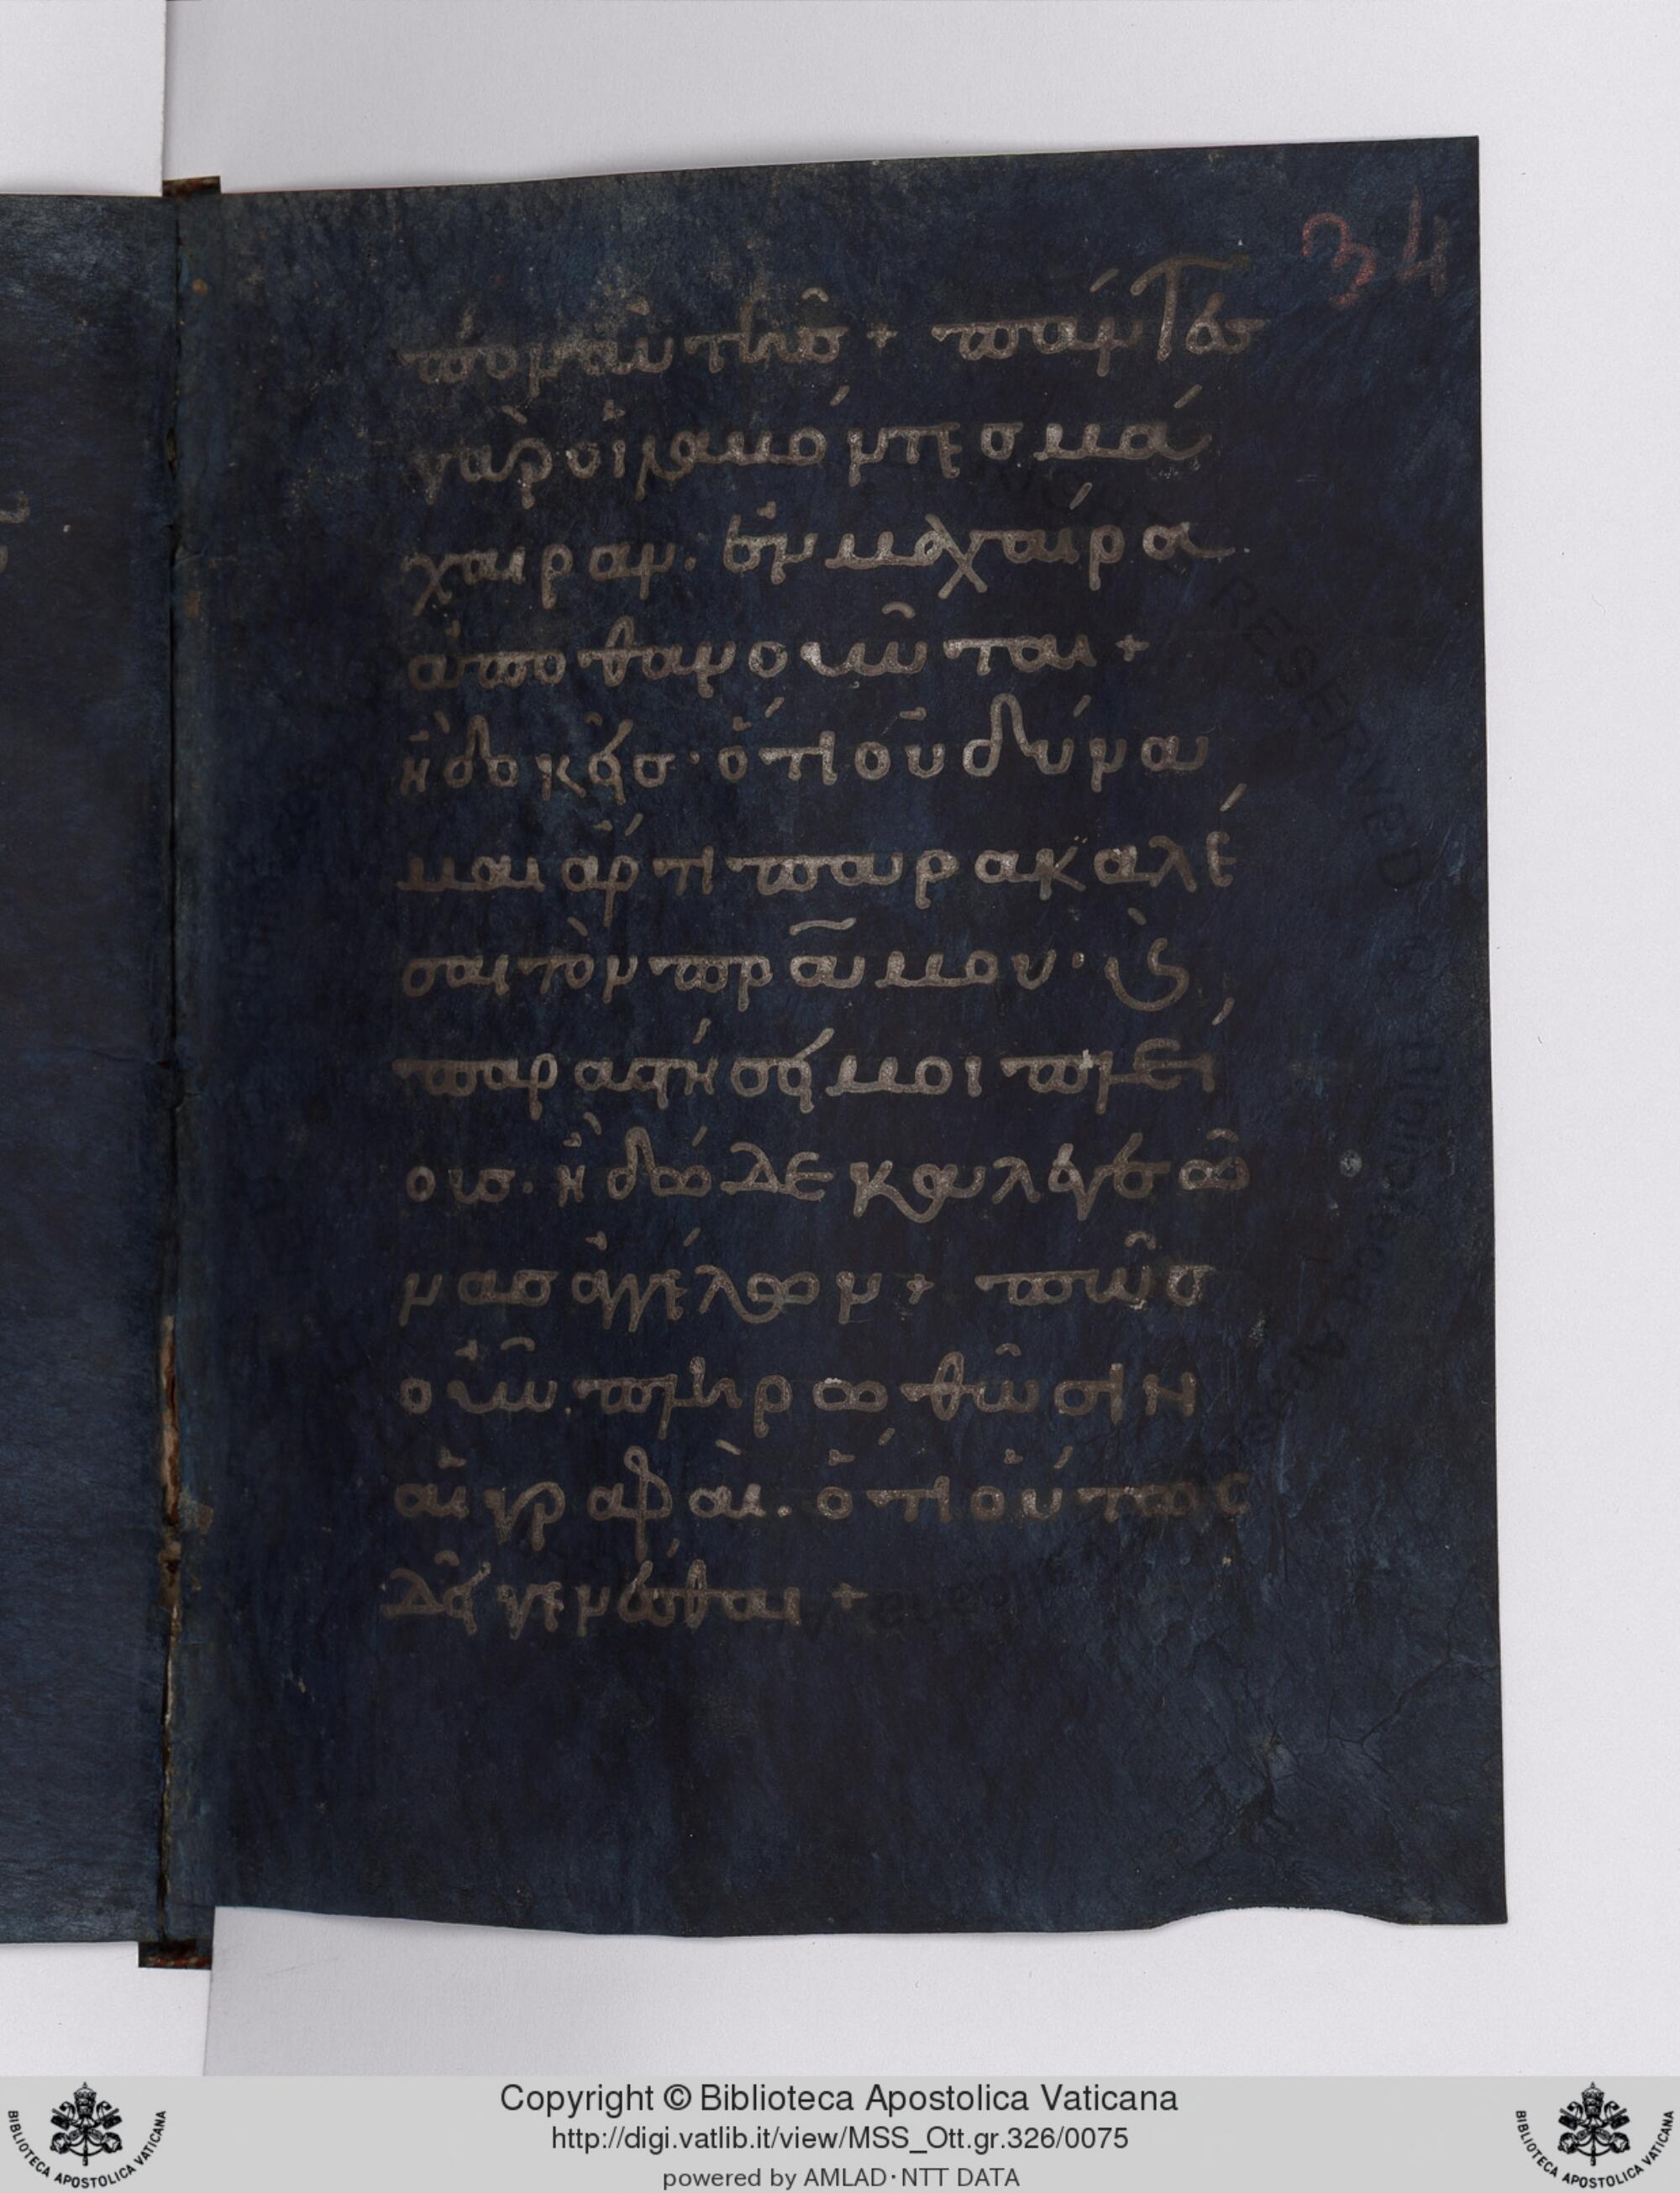 34
πον αὐτῆσ + πάντεσ
γὰρ οἱ λαβόντεσ μά
χαιραν. ἐν μαχαίρα
ἀποθανοῦνται +
ἢ δοκεῖσ· ὅτι οὐ δύνα
μαι ἄρτι παρακαλέ
σαι τὸν πρ̅α̅ μου· ϗ̀
παραστήσει μοι πλεί
ουσ. ἢ δώδεκα λεγεῶ
νασ ἀγγέλων + πῶσ
οὖν πληρωθῶσιν
αἱ γραφαὶ. ὅτι οὕτως
δεῖ γενέσθαι +
RIGHTS RESERVED
Copyright © Biblioteca Apostolica Vaticana
http://digi.vatlib.it/view/MSS_Ott.gr.326/0075
powered by AMLAD·NTT DATA
BIBLIOTECA APOSTOLICA VATICANA
BIBLIOTECA APOSTOLICA VATICANA